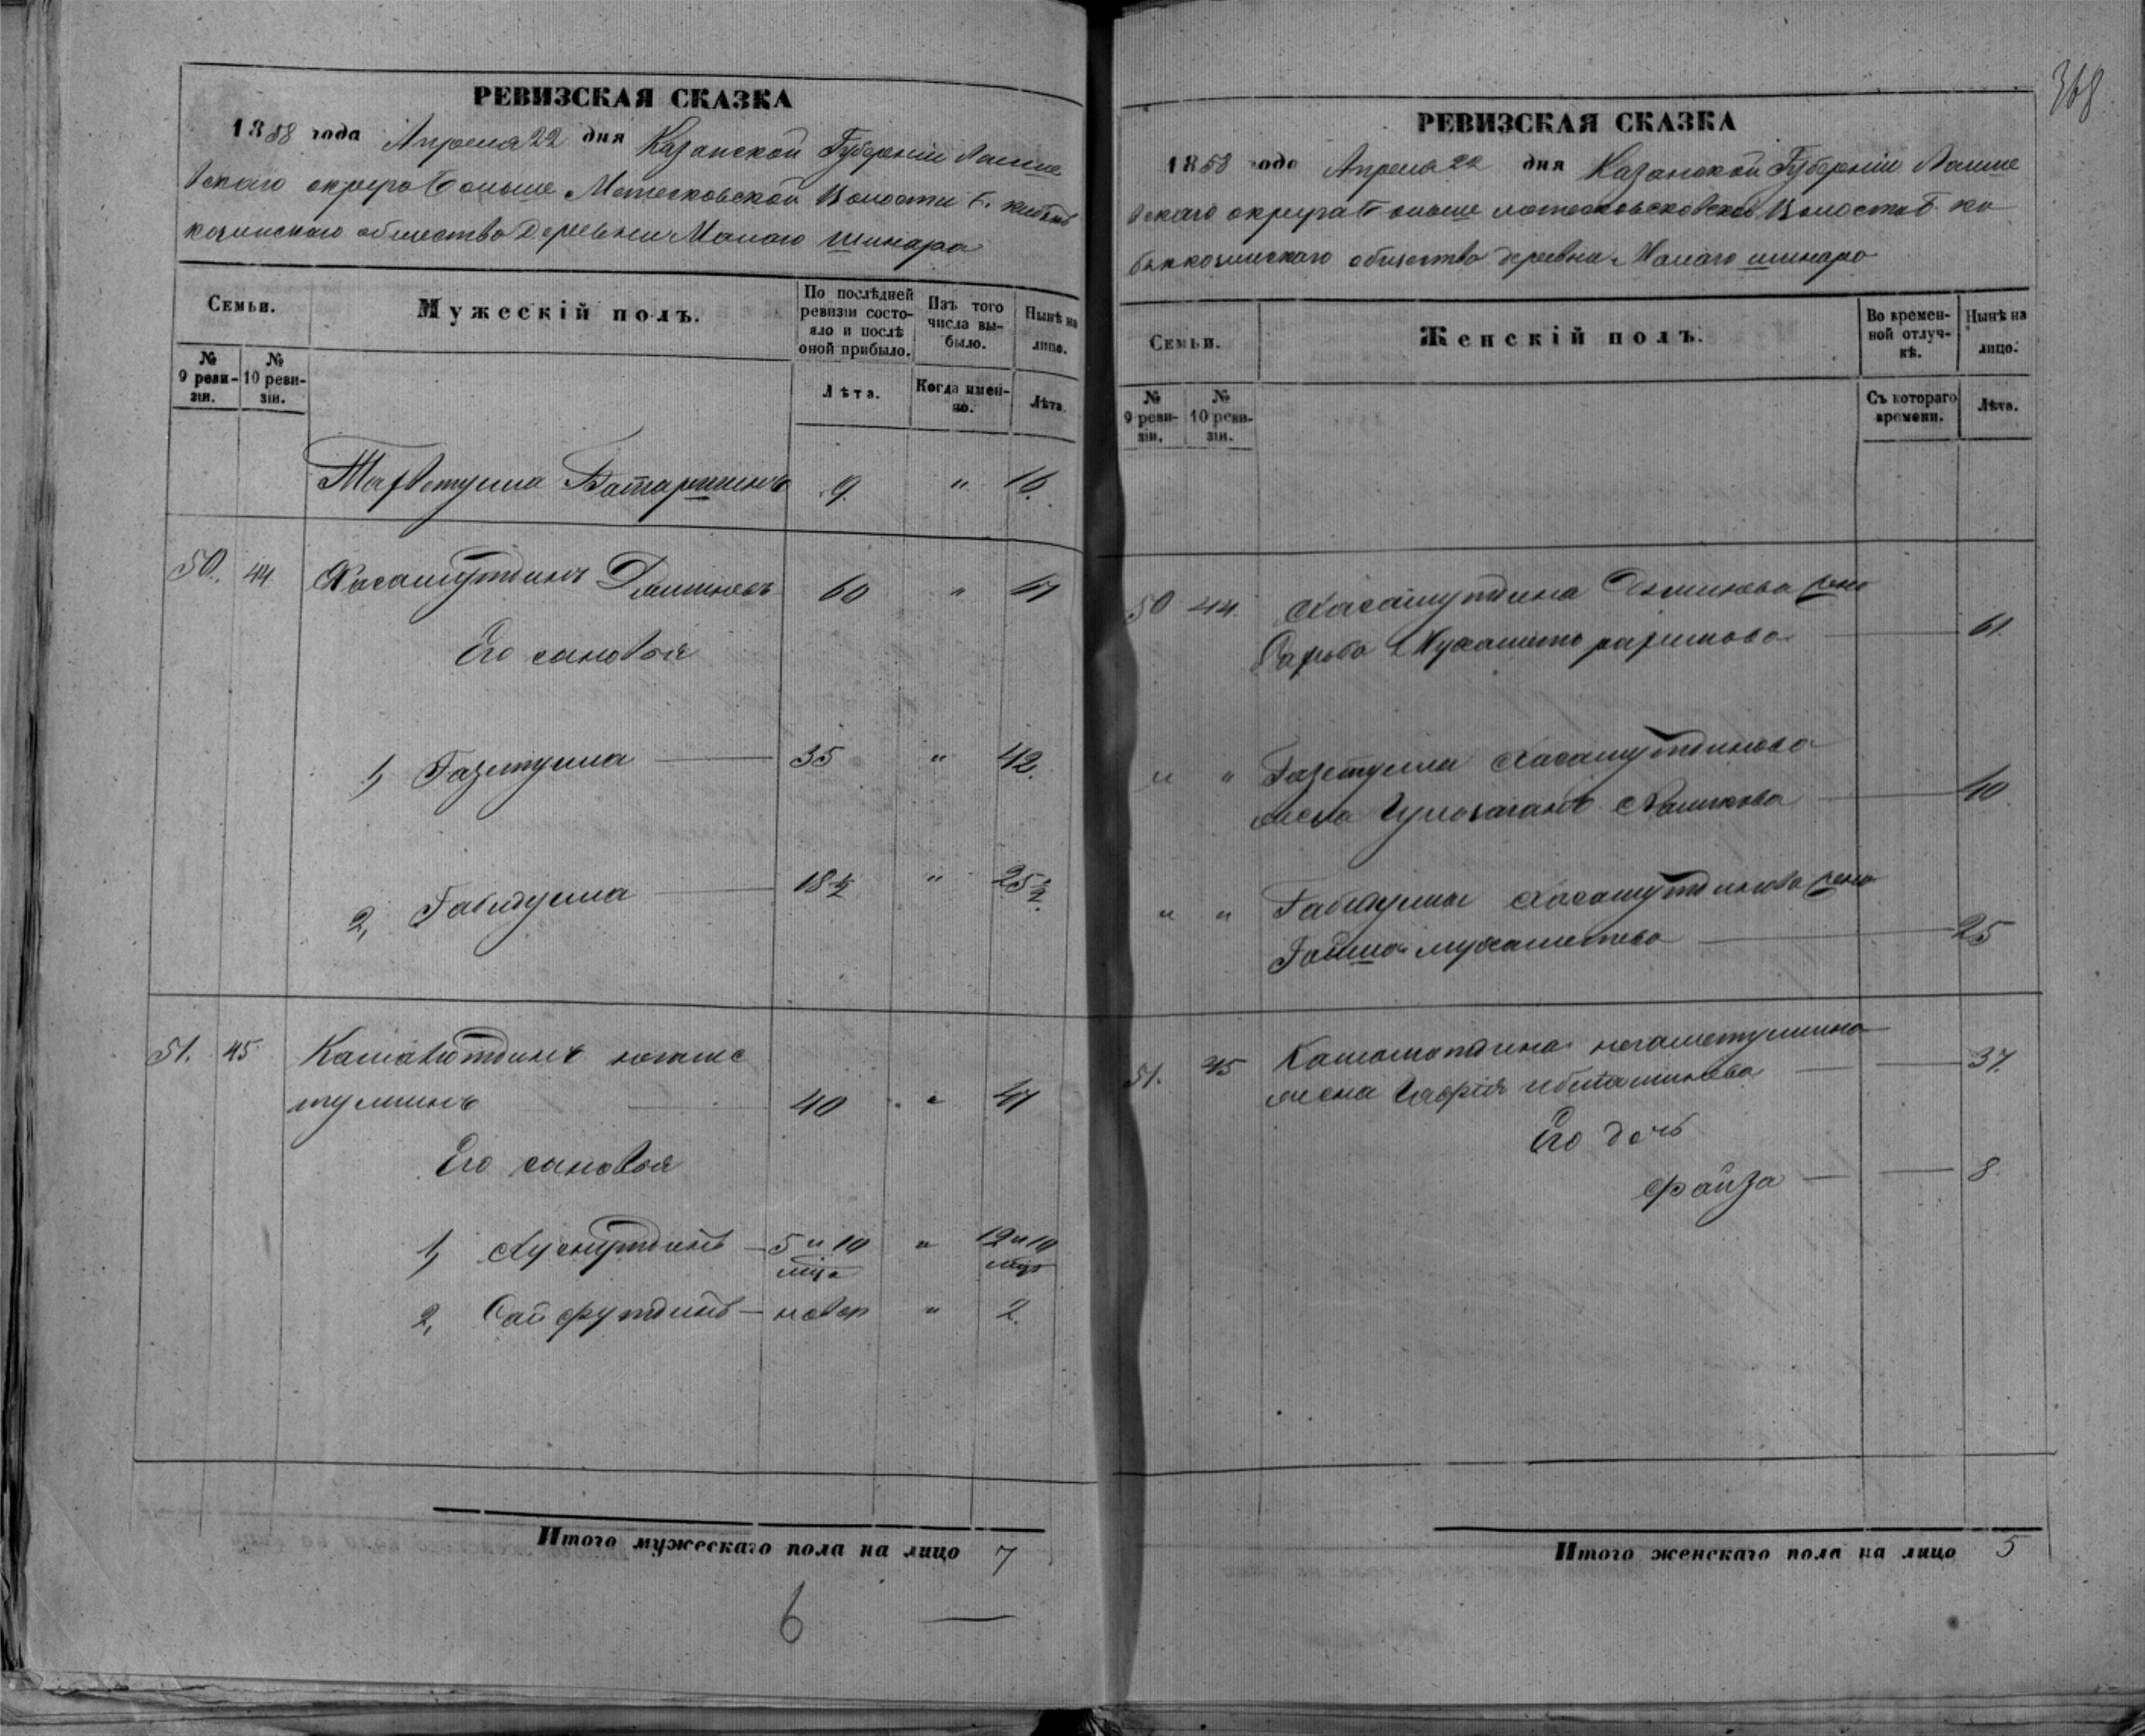 РЕВИЗСКАЯ СКАЗКА
1858 года Апреля 22 дня Казанской Губернии Лаише
вскаго округа Больше Метесковской Волости Б. кибяк
козинскаго общества Деревни Малаго шинара
Семьи.
Мужескій полъ.
По послѣдней ревизіи состояло и послѣ оной прибыло.
Изъ того числа выбыло.
Нынѣ на лицо.
№ 9 ревизіи.
№ 10 ревизіи.
Лѣта.
Когда именно.
Лѣта.
Батаршинъ 9. " 16.
50. 44 Хасамутдинъ 60 " 67
Его сыновья
1, Газетулла 35 " 42.
2, Габидулла 18½ " 25½.
51. 45 Камалютдинъ негаме
туллинъ 40 " 47
Его сыновья
1, Хуснутдинъ 5 и 10 мца " 12 и 10 мцо
2, Сайфутдинъ новор " 2.
Итого мужескаго пола на лицо 7
6
368
РЕВИЗСКАЯ СКАЗКА
1858 года Апреля 22 дня Казанской Губерніи Лаише
вскаго округа Больше Волости Б. ки
бяккозинскаго общества деревни Малаго шинара
Семьи.
Женскій полъ.
Во временной отлучкѣ.
Нынѣ на лицо.
№ 9 ревизіи.
№ 10 ревизіи.
Съ котораго времени.
Лѣта.
50 44. Хасамутдина жена
61.
" " Газетуллы Хасамутдинова
жена 40
" " Габидуллы Хасамутдинова жена
мухаметева 25
51. 45 Камалютдина негаметуллина
жена 37.
Его дочь
Файза 8.
Итого женскаго пола на лицо 5